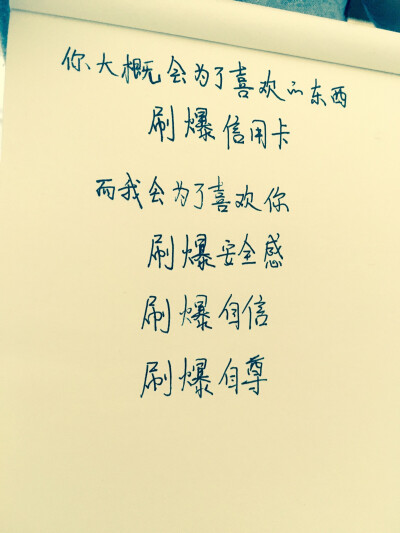 你大概会为了喜欢的东西
刷爆信用卡
而我会为了喜欢你
刷爆安全感
刷爆自信
刷爆自尊